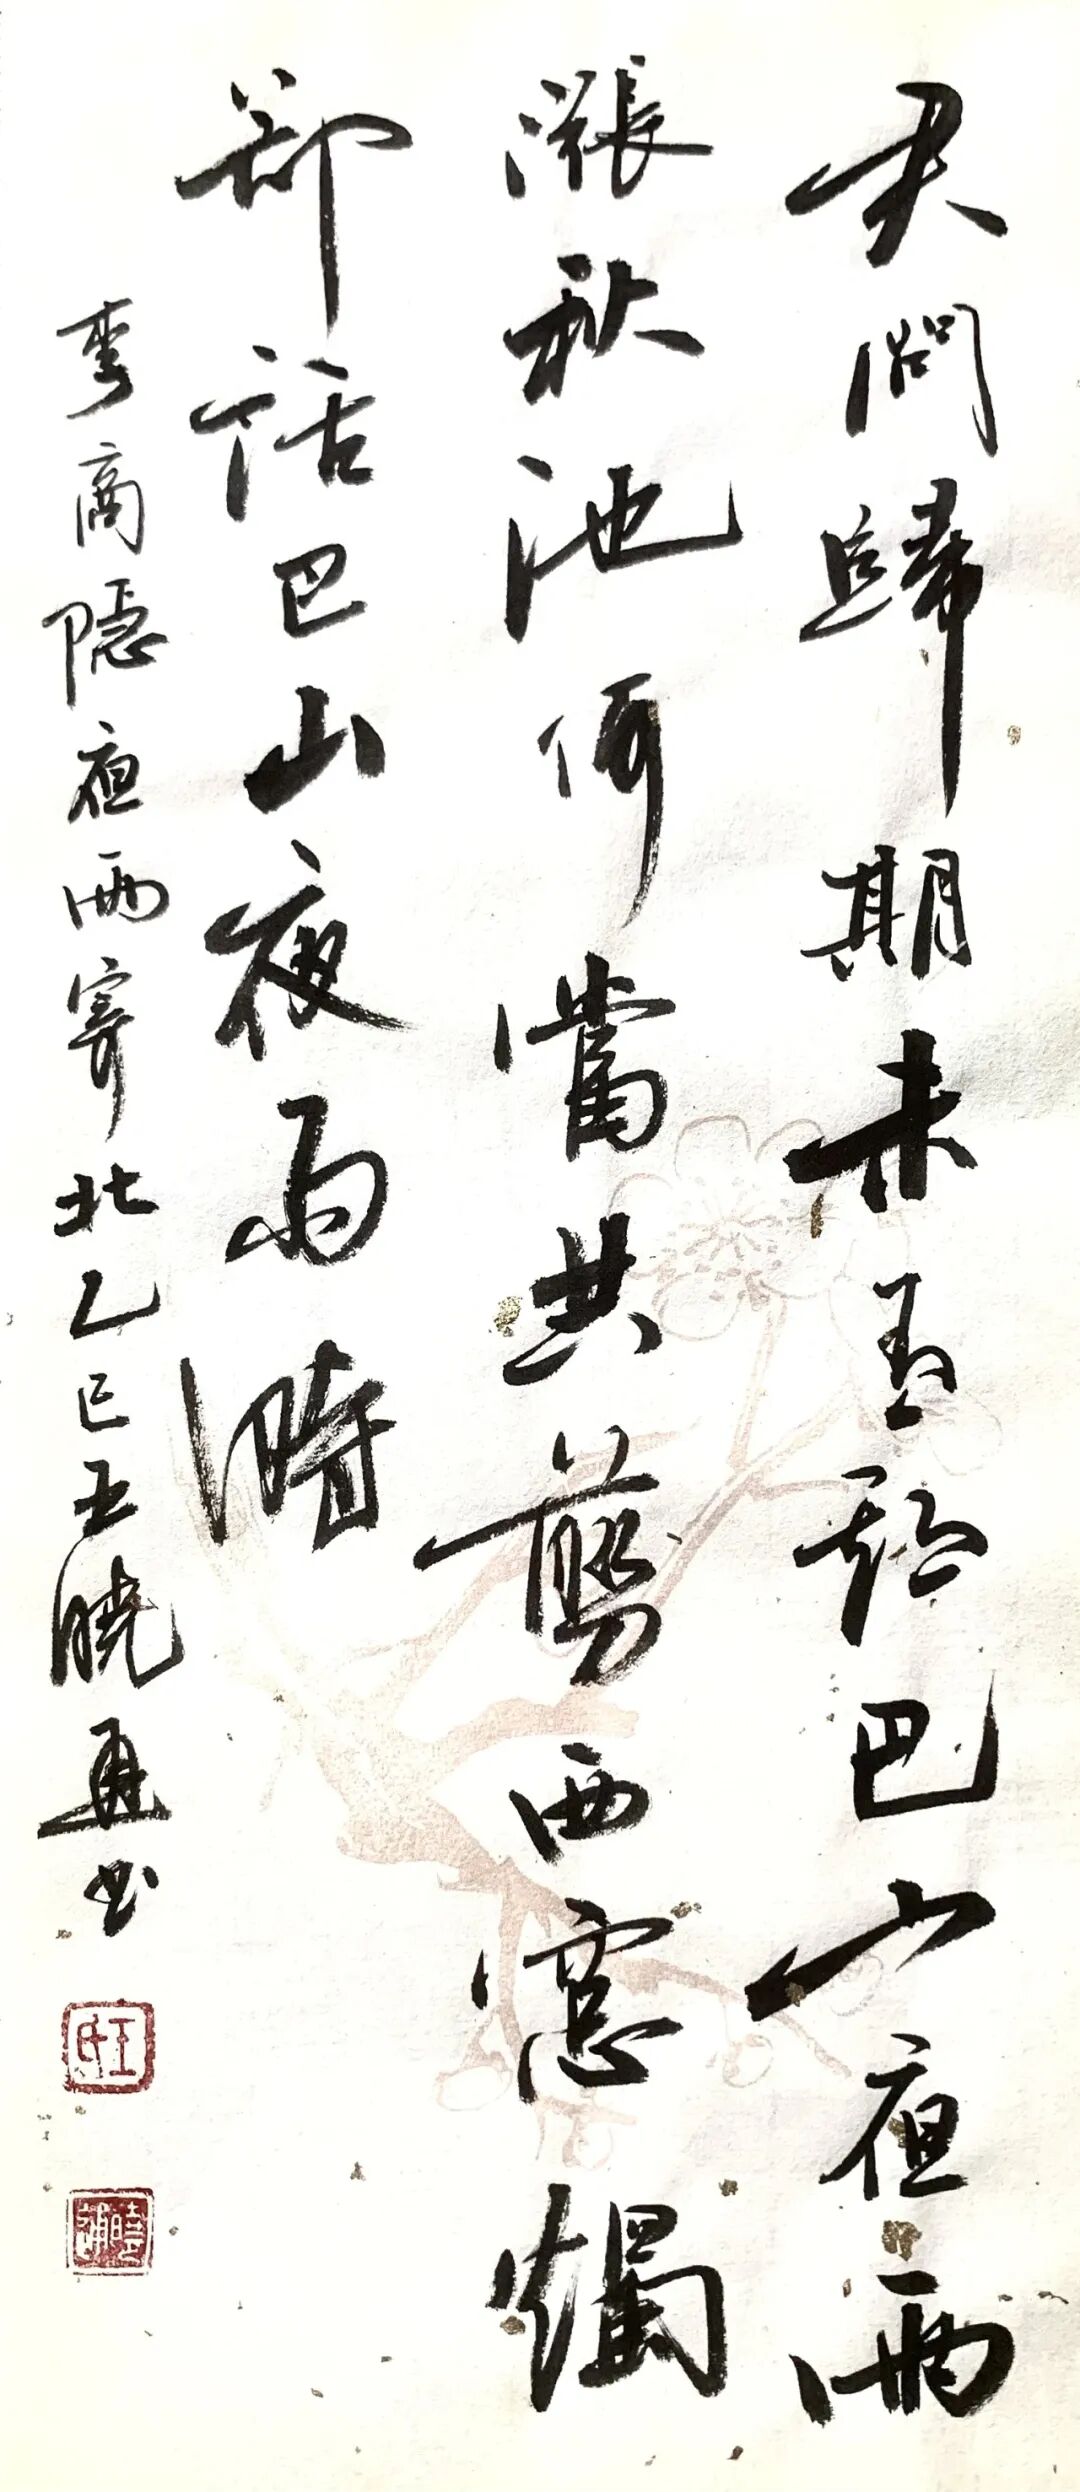 君問歸期未有期巴山夜雨
漲秋池何當共剪西窓燭
却話巴山夜雨時
李商隱夜雨寄北乙巳王曉通书
王氏